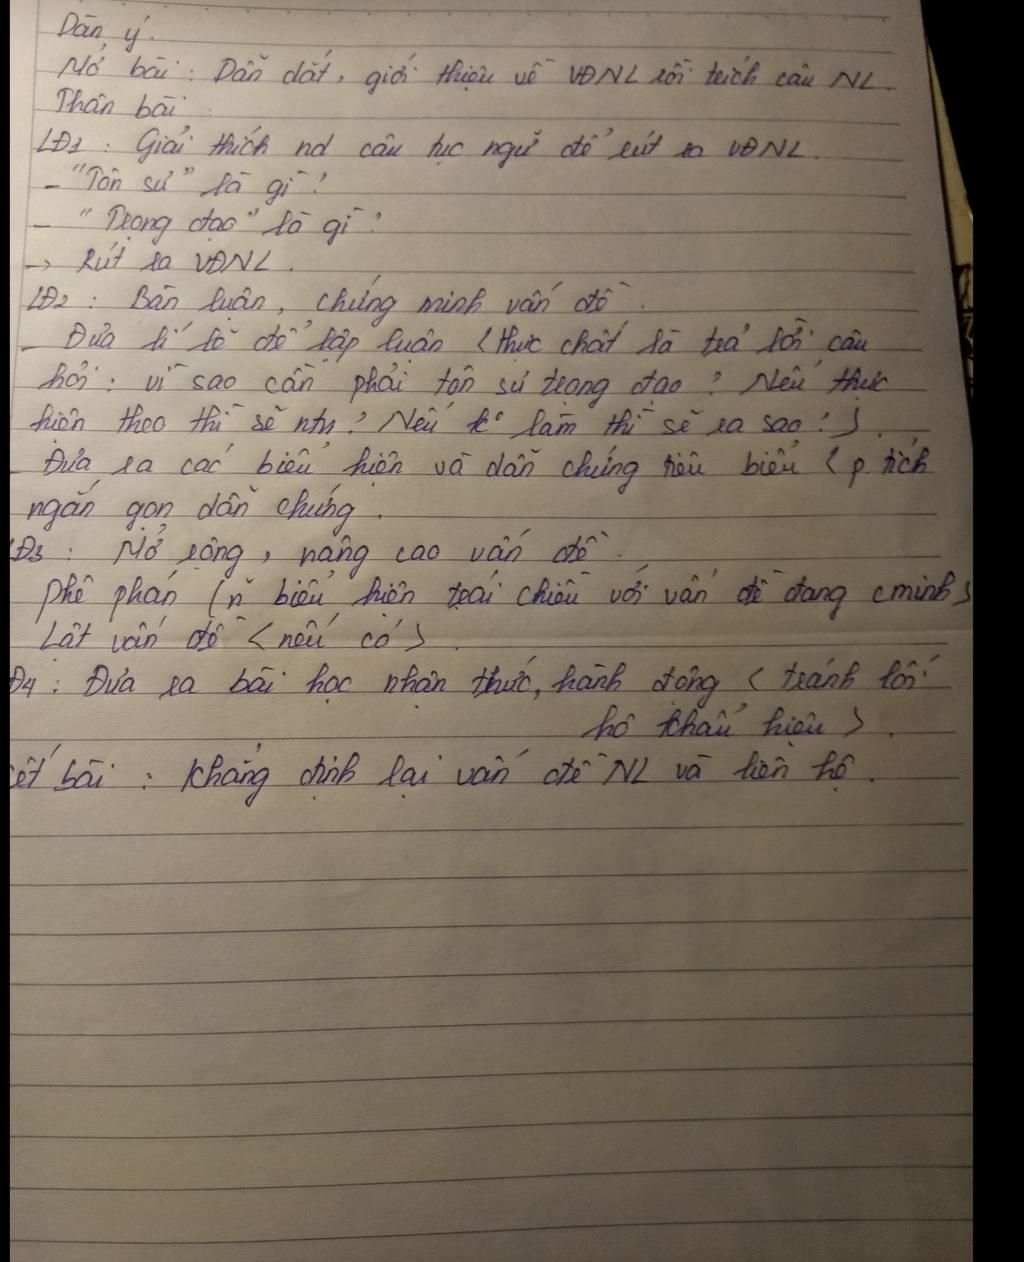 Dàn ý.
Mở bài: Dẫn dắt, giới thiệu về VĐNL rồi trích câu NL.
Thân bài:
LĐ1: Giải thích nd câu tục ngữ để rút ra VĐNL.
- "Tôn sư" là gì?
- "Trọng đạo" là gì?
-> Rút ra VĐNL.
LĐ2: Bàn luận, chứng minh vấn đề.
- Đưa lí lẽ để lập luận <thực chất là trả lời câu
hỏi: vì sao cần phải tôn sư trọng đạo? Nếu thực
hiện theo thì sẽ ntn? Nếu k° làm thì sẽ ra sao?>.
- Đưa ra các biểu hiện và dẫn chứng tiêu biểu <p.tích
ngắn gọn dẫn chứng.
LĐ3: Mở rộng, nâng cao vấn đề.
Phê phán (n~ biểu hiện trái chiều với vấn đề đang cminh>
Lật vấn đề <nếu có>.
Đ4: Đưa ra bài học nhận thức, hành động <tránh lối
hô khẩu hiệu>.
ết bài: Khẳng định lại vấn đề NL và liên hệ.